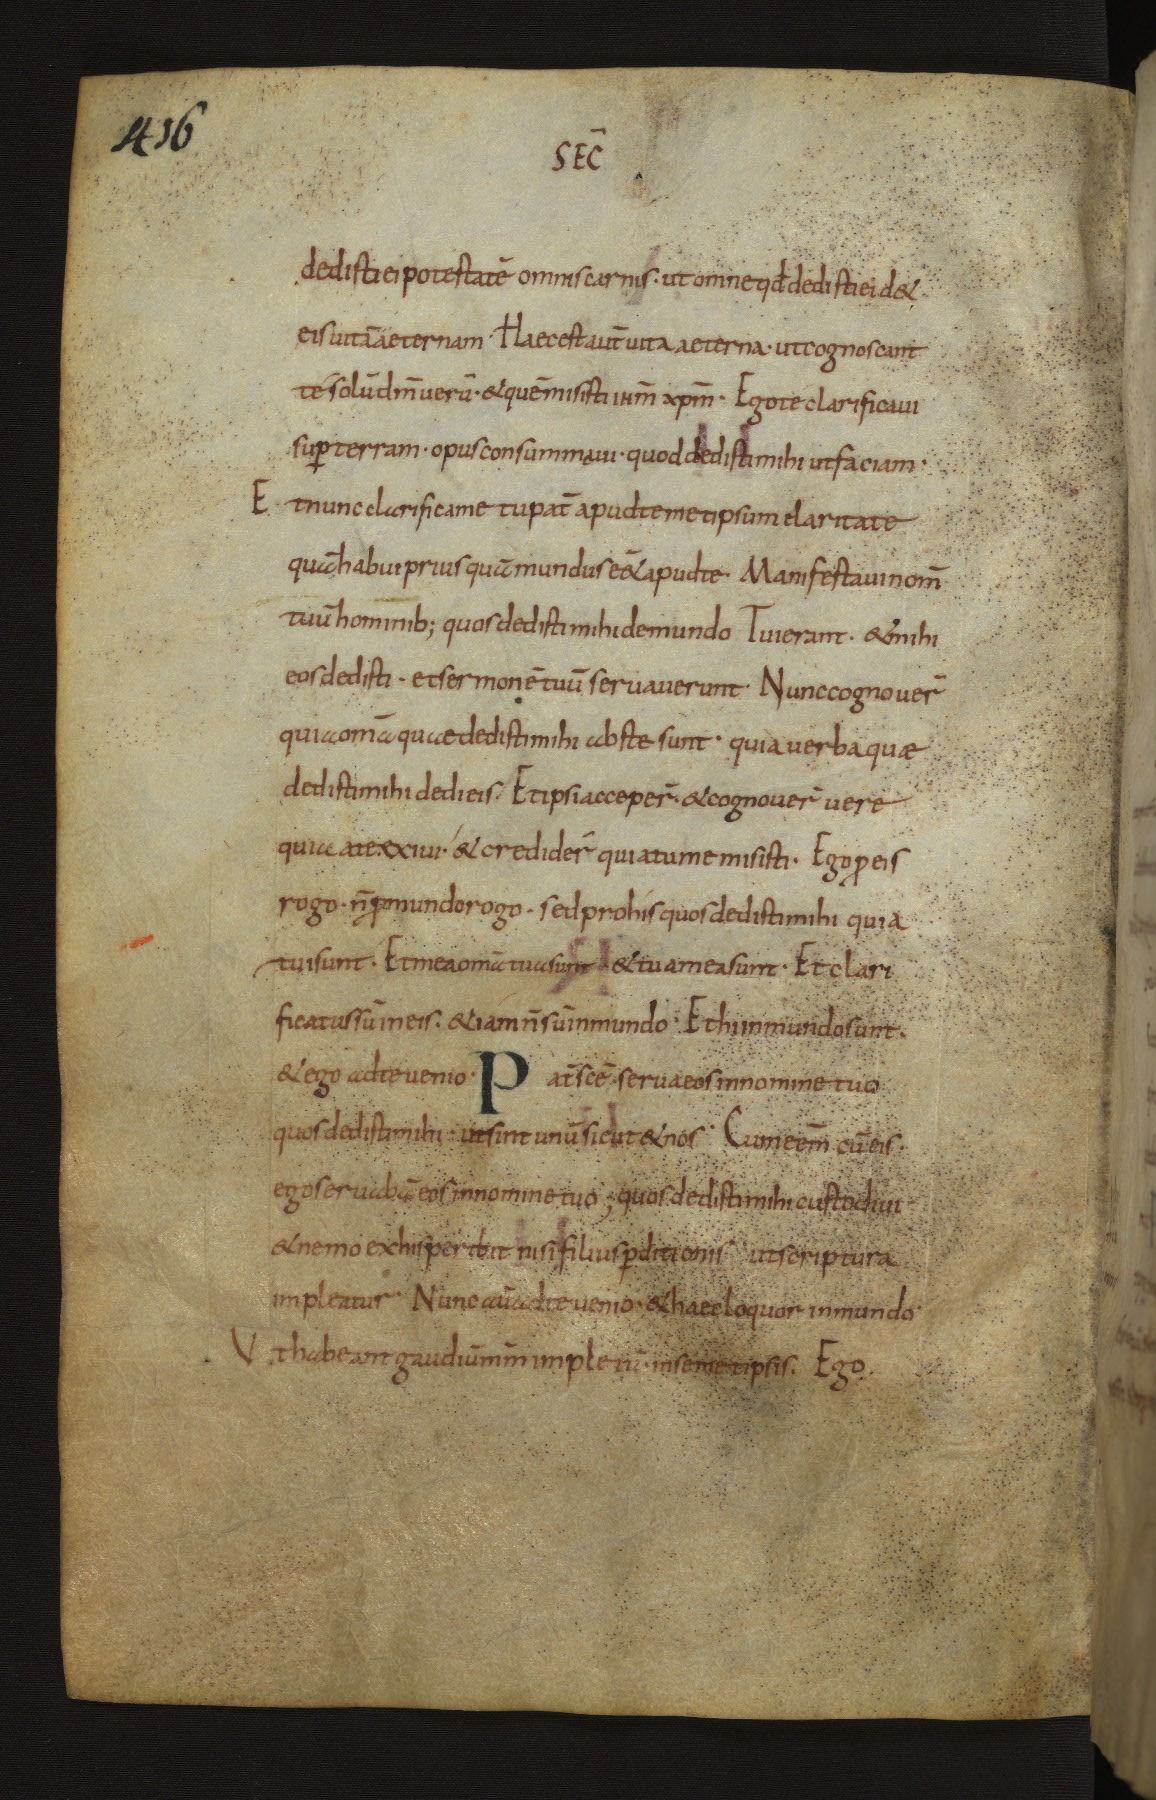 416
SEC̄
dedisti ei potestatē omnis carnis · ut omne qd̄ dedisti ei d&
eis uitā aeternam · Haec est aut̄ uita aeterna · ut cognoscant
té solū dm̄ uerū · & quē misisti ihm̄ xpm̄ · Ego te clarificaui
sup̱ terram · opus consummaui · quod dedisti mihi ut faciam ·
Et nunc clarifica me tu pat̄ apud te metipsum claritate
quā habui prius quā mundus eē& apud te · Manifestaui nom̄
tuū hominib; quos dedisti mihi de mundo Tui erant · & mihi
eos dedisti · et sermonē tuū seruauerunt · Nunc cognouer̄
quia om̄a quae dedisti mihi abs te sunt · quia uerba quae
dedisti mihi dedi eis · Et ipsi acceper̄ · & cognouer̄ uere
quia a te exiui · & credider̄ quia tu me misisti · Ego ꝓ eis
rogo · n̄ ꝓ mundo rogo · sed pro his quos dedisti mihi quia
tui sunt · Et mea om̄a tua sunt & tua mea sunt · Et clari
ficatus sū in eis · & iam n̄ sū in mundo · Et hi in mundo sunt ·
& ego ad te uenio · Pat̄ scē · serua eos in nomine tuo
quos dedisti mihi · ut sint unū sicut & nos · Cum eēm cū eis ·
ego seruabā eos in nomine tuo ; quos dedisti mihi custodiui
& nemo ex his peribit nisi filius p̱ditionis ut scriptura
impleatur Nunc aū ad te uenio · & haec loquor in mundo ·
Ut habeant gaudiū mm̄ impletū · in semetipsis · Ego ·